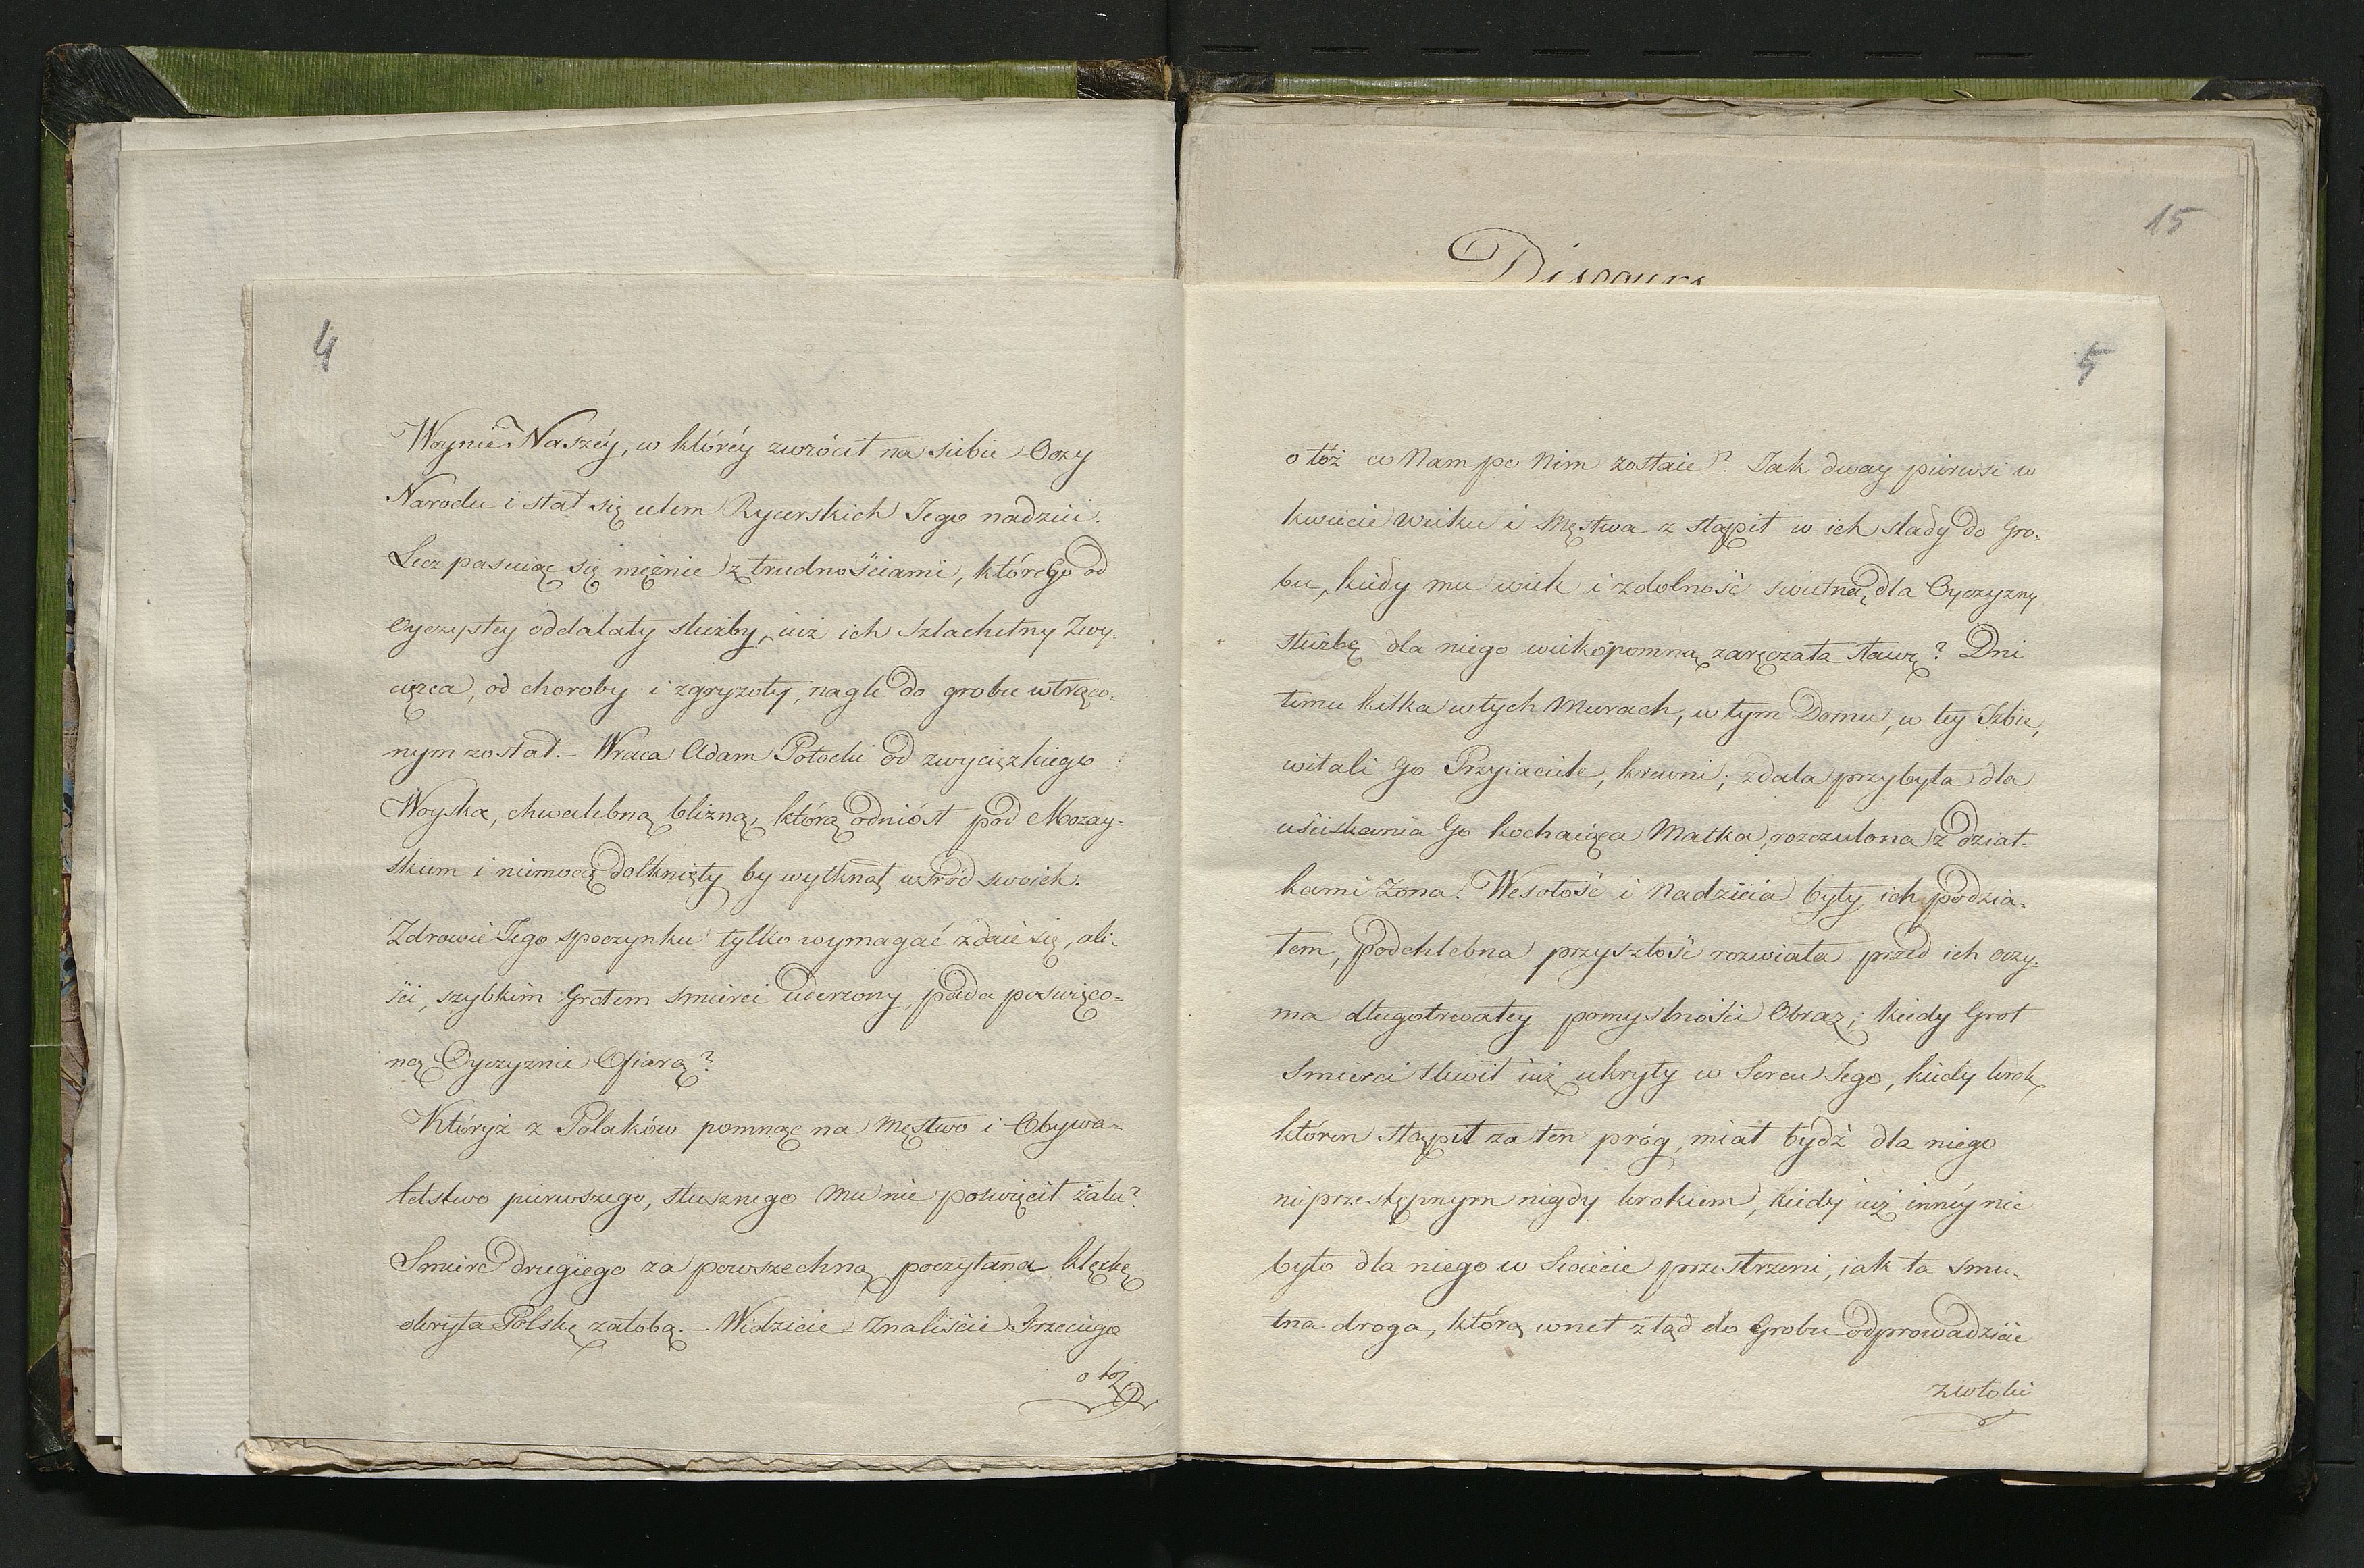 4
Woynie Naszéy, w któréy zwrócił na siebie Oczy
Narodu i stał się celem Rycerskich Jego nadziei.
Lecz pasuiąc się mężnie z trudnościami, które Go od
Oyczystey oddalały służby, iuż ich szlachetny Zwy-
cięzca, od choroby i zgryzoty, nagle do grobu wtrąco-
nym został. – Wraca Adam Potocki od zwycięzkiego
Woyska, chwalebną blizną, którą odniósł pod Mozay-
skiem i niemocą dotknięty by wytknąć wśród swoich.
Zdrowie Jego spoczynku tylko wymagać zdaie się, ali-
ści, szybkim Grotem śmierci uderzony, pada poswięco-
ną Oyczyznie Ofiarą?
Któryż z Polaków pomnąc na Męstwo i Obywa-
telstwo pierwszego, słusznego Mu nie poswięcił żalu?
Smierć drugiego za powszechną poczytana klęskę
okryła Polskę żałobą. – Widzicie – Znaliście Trzeciego
o tóż
Discours
15
5
o tóż co Nam po Nim zostaie? Jak dway pierwsi w
kwiecie wieku i Męstwa z stąpił w ich slady do Gro-
bu, kiedy mu wiek i zdolność swietną dla Oyczyzny
służbę dla niego wiekopomną zaręczała sławę? Dni
temu kilka w tych Murach, w tym Domu, w tey Izbie,
witali Go Przyiaciele, krewni; zdala przybyła dla
uściskania Go kochaiąca Matka, rozczulona z dziat-
kami Żona. Wesołość i Nadzieia były ich podzia-
łem, podchlebna przyszłość rozwiała przed ich oczy-
ma długotrwałey pomyslności Obraz; kiedy Grot
Smierci tkwił iuż ukryty w Sercu Jego, kiedy krok,
którem stąpił za ten próg, miał bydź dla niego
nieprzestępnym nigdy krokiem, kiedy iuż innéy nie
było dla niego w Swiecie przestrzeni, iak ta smu-
tna droga, którą wnet z tąd do Grobu odprowadzicie
zwłoki